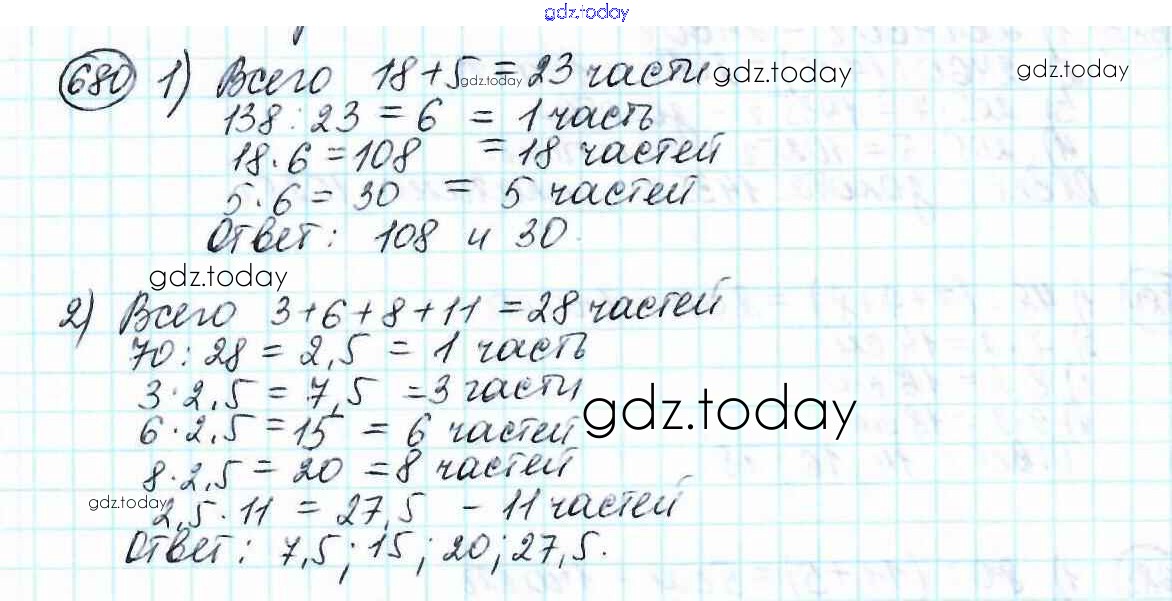 gdz.today
680 1) Всего 18+5 gdz.today = 23 части gdz.today gdz.today
138 : 23 = 6 = 1 часть
18 · 6 = 108 = 18 частей
5 · 6 = 30 = 5 частей
Ответ: 108 и 30.
gdz.today
2) Всего 3+6+8+11 = 28 частей
70 : 28 = 2,5 = 1 часть
3 · 2,5 = 7,5 = 3 части
gdz.today
6 · 2,5 = 15 = 6 частей
8 · 2,5 = 20 = 8 частей
gdz.today
2,5 · 11 = 27,5 - 11 частей
Ответ: 7,5; 15; 20; 27,5.